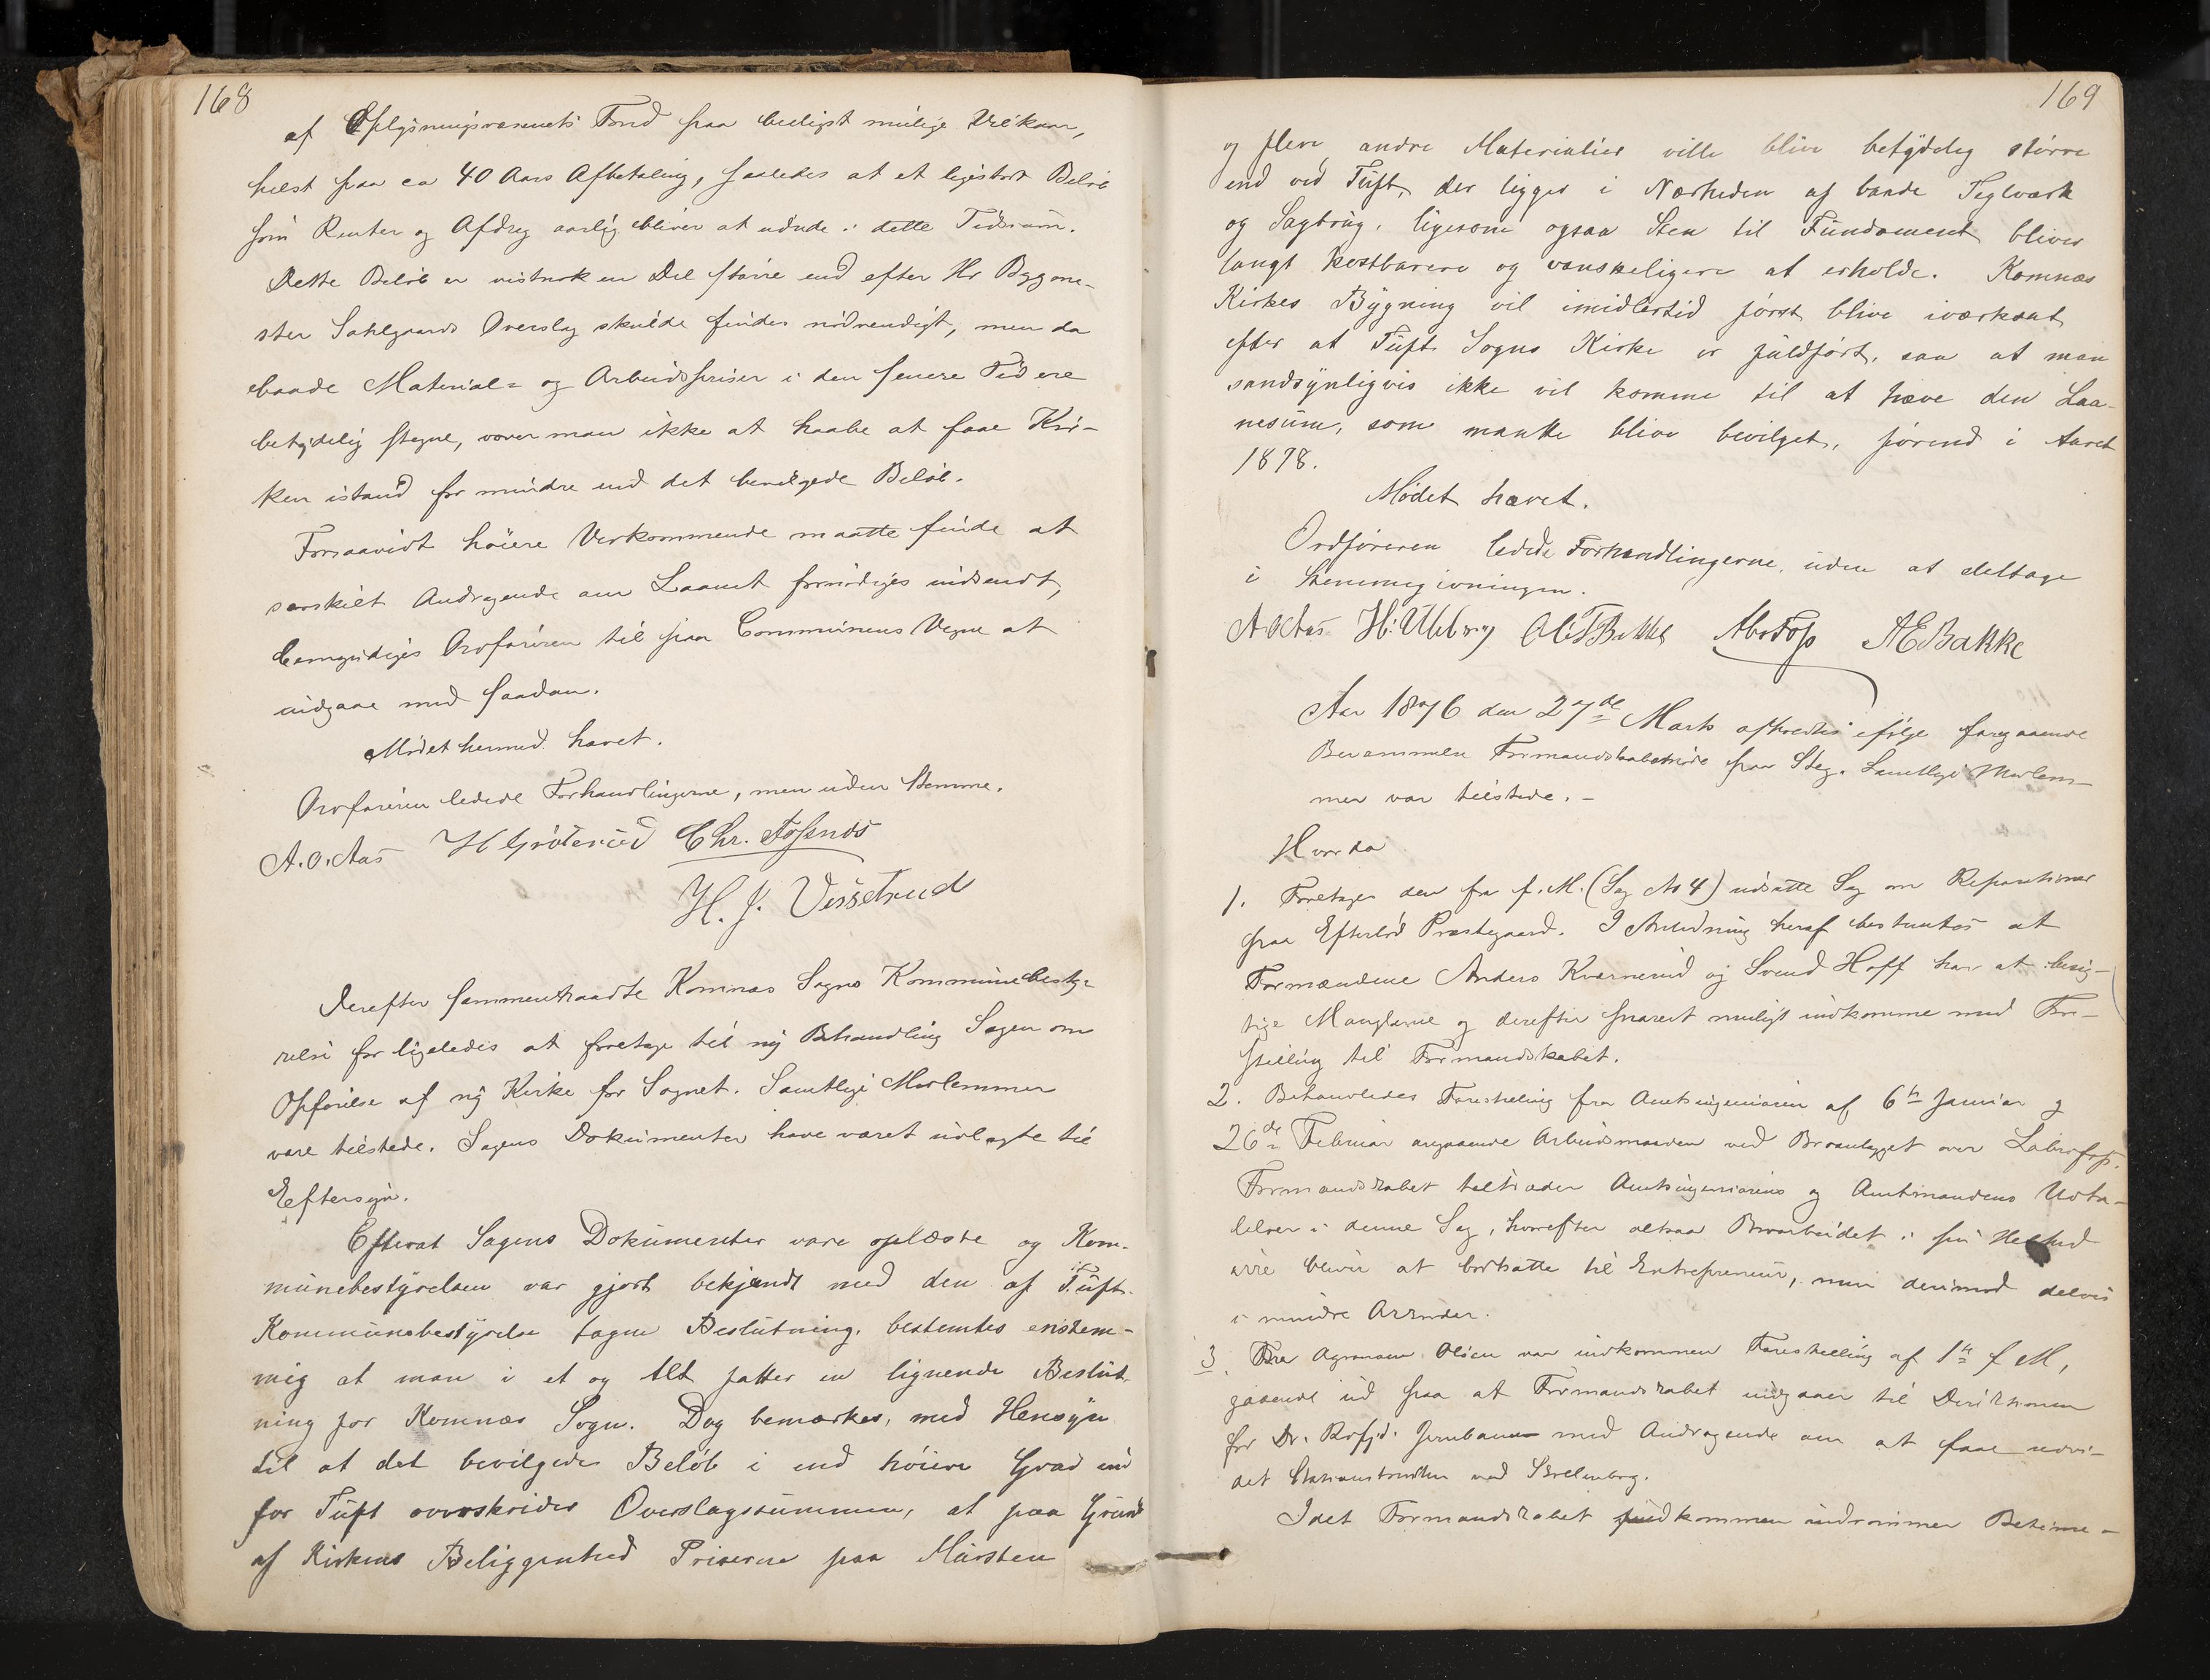 168
af Oplysningsvæsenets Fond paa billigst mulige Vilkaar,
helst paa ca 40 Aars Afbetaling, saaledes at et ligestort Beløb
som Renter og Afdrag aarlig bliver at udrede i dette Tidsrum.
Dette Beløb er vistnok en Del større end efter Hr Bygme-
ster Overslag skulde findes nødvendigt, men da
baade Material- og Arbeidspriser i den senere Tid ere
betydelig stegne, vover man ikke at haabe at faae Kir-
ken istand for mindre end det bevilgede Beløb.
Forsaavidt høiere Vedkommende maatte finde at
særskilt Andragende om Laanet formodiges indsendt,
bemyndiges Ordføreren til paa Communens Vegne at
indgaae med saadan.
Mødet hermed hævet.
Ordføreren ledede Forhandlingerne, men uden Stemme.
A.O.Aas H Grøterud Chr. Fossnæs
H. J. Vissetrud
Derefter sammentraadte Komnæs Sogns Kommunebesty-
relse for ligeledes at foretage til ny Behandling Sagen om
Opførelse af ny Kirke for Sognet. Samtlige Medlemmer
vare tilstede. Sagens Dokumenter have været udlagte til
Eftersyn.
Efterat Sagens Dokumenter vare oplæste og Kom-
munebestyrelsen var gjort bekjendt med den af Tufts
Kommunebestyrelse tagne Beslutning, bestemtes enstem-
mig at man i et og Alt fatter en lignende Beslut-
ning for Komnæs Sogn. Dog bemærkes, med Hensyn
til at det bevilgede Beløb i end høiere Grad end
for Tuft overskrider Overslagssummen, at paa Grund
af Kirkens Beliggenhed Priserne paa Mursten
169
og flere andre Materialier ville blive betydelig større
end ved Tuft, der ligger i Nærheden af baade Teglværk
og Sagbrug, ligesom ogsaa Sten til Fundament bliver
langt kostbarere og vanskeligere at erholde. Komnæs
Kirkes Bygning vil imidlertid først blive iværksat
efter at Tuft Sogns Kirke er fuldført, saa at man
sandsynligvis ikke vil komme til at hæve den Laa-
nesum, som maatte blive bevilget, førend i Aaret
1878.
Mødet hævet.
Ordføreren ledede Forhandlingerne, uden at deltage
i Stemmegivningen.
A.O.Aas AEBakke
Aar 1876 den 27de Marts afholdtes ifølge foregaaende
Berammelse Formandskabsmøde paa Steg. Samtlige Medlem-
mer var tilstede. –
Hvorda
1. Foretages den fra f. M. (Sag No 4) udsatte Sag om Reparationer
paa Efterlød Præstegaard. I Anledning heraf bestemtes at
Formændene Anders Kværnerud og Svend Hoff har at besig-
tige Manglerne og derefter snarest muligt indkomme med Fore-
stilling til Formandskabet.
2. Behandledes Forestilling fra Amtsingeniøren af 6te Januar og
26de Februar angaaende Arbeidsmaaden ved Broanlægget over Labrofos.
Formandskabet tiltræder Amtsingeniørens og Amtmandens Udta-
lelser i denne Sag, hvorefter altsaa Broarbeidet i sin Helhed
ikke bliver at bortsætte til Entrepreneur, men derimod delvis
i mindre Accorder.
3. Fra Agronom Olsen var indkommen Forestilling af 1te f M,
gaaende ud paa at Formandskabet indgaaer til Direktionen
for Dr. Rdfjd. Jernbane med Andragende om at faae udvi-
det Stationstomten ved Skollenborg.
Idet Formandskabet fuldkommen indrømmer Betime-